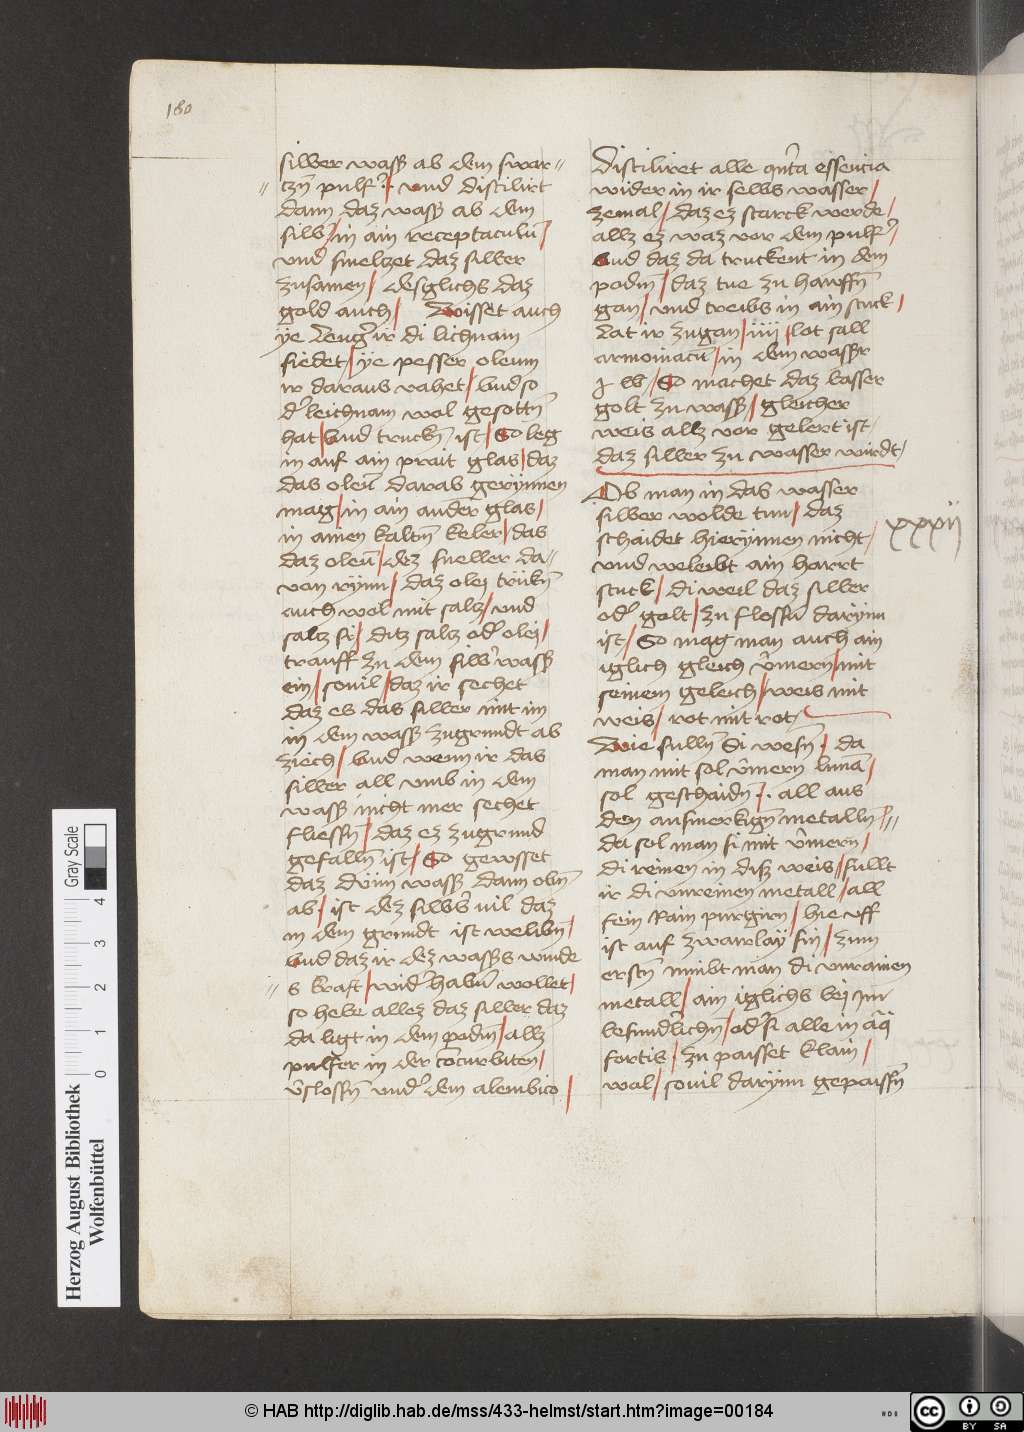 180
silber wass ab dem swar//
// czn̄ pulfˀ · vnd distilirt
dann daz wass ab dem
silbˀ / in ain receptaculū /
vnd smelczet daz silber
zusamen / desglichs daz
gold auch / Wisset auch
ye lengˀ ir di lichnam
siedet / ye pesser oleum
ir daraus vahet / vnd so
dˀ leichnam wol gesottn̄
hat / vnd truckn̄ ist / So leg
in auf ain prait glas / daz
das oleū darab gerynnen
mag / in ain anderˀ glas /
in ainen kaltn̄ keler / das
daz oleū / dez sneller da//
von rynn / daz olej trükn̄
auch wol mit salcz / vnd
salcz si / ditz salcz odˀ olej /
trauff zu dem silbˀ wass
ein / souil / daz ir sechet
daz es das silber mit im
in dem wass zugrundt ab
ziech / vnd wenn ir das
silber all vmb in dem
wass nicht mer sechet
fliessn̄ / daz ez zugrund
gefalln̄ ist / So gewsset
daz dünn wass dann obn̄
ab / ist dez silbˀs vil daz
in dem grundt ist welibn̄ /
vnd daz ir dez wassˀs wider
// s kraft / widˀ habn̄ wollet /
so hebe allez daz silber daz
da ligt in dem podm / allz
pulfer in der concurbiten /
vˀslossn̄ vndˀ dem alembico /
Distiliret alle qn̄ta essencia
wider in ir selbs wasser /
zemal / daz ez starck werde /
allz ez waz vor dem pulfˀ /
vnd daz da truckent in dem
podm̄ / daz tue zu hauffn̄
gan / vnd treibs in ain stuck /
Lat ir zugan / iiii / lot sall
armoniacū / in dem wassˀ
So machet daz basser
golt zu wass / gleicher
weis allz vor gelert ist /
daz silber zu wasser würdt /
Ob man in das wasser
silber wolde tun / daz
schaidet hierynnen nicht /
xxxij
vnd weleibt ain hartt
stuck / di weil daz silber
odˀ golt / zu flossn̄ darynn
ist / So mag man auch ain
iglich gleich vˀmern / mit
seinem geleich / weis mit
weis / rot mit rot /
Wie sulln̄ Si wesn̄ · da
man mit sol vˀmern lunā /
sol geschaidn̄ · · all aus
den aufmerkign̄ metalln̄ //
da sol man si mit vˀmern /
di reinen in diss weis / sullt
ir di vnreinen metall / all
fein Rain purgirn / hie vff
ist auf zwairlay sin / zum
erstn̄ nimbt man di vnrainen
metall / ain iglichs bej im
besundˀlichn̄ / odˀ si alle in aq̄
fortis / zu paisset klain /
wol / souil darynn gepaissn̄
Herzog August Bibliothek
Wolfenbüttel
Gray Scale
0 1 2 3 4
© HAB http://diglib.hab.de/mss/433-helmst/start.htm?image=00184
CC BY SA